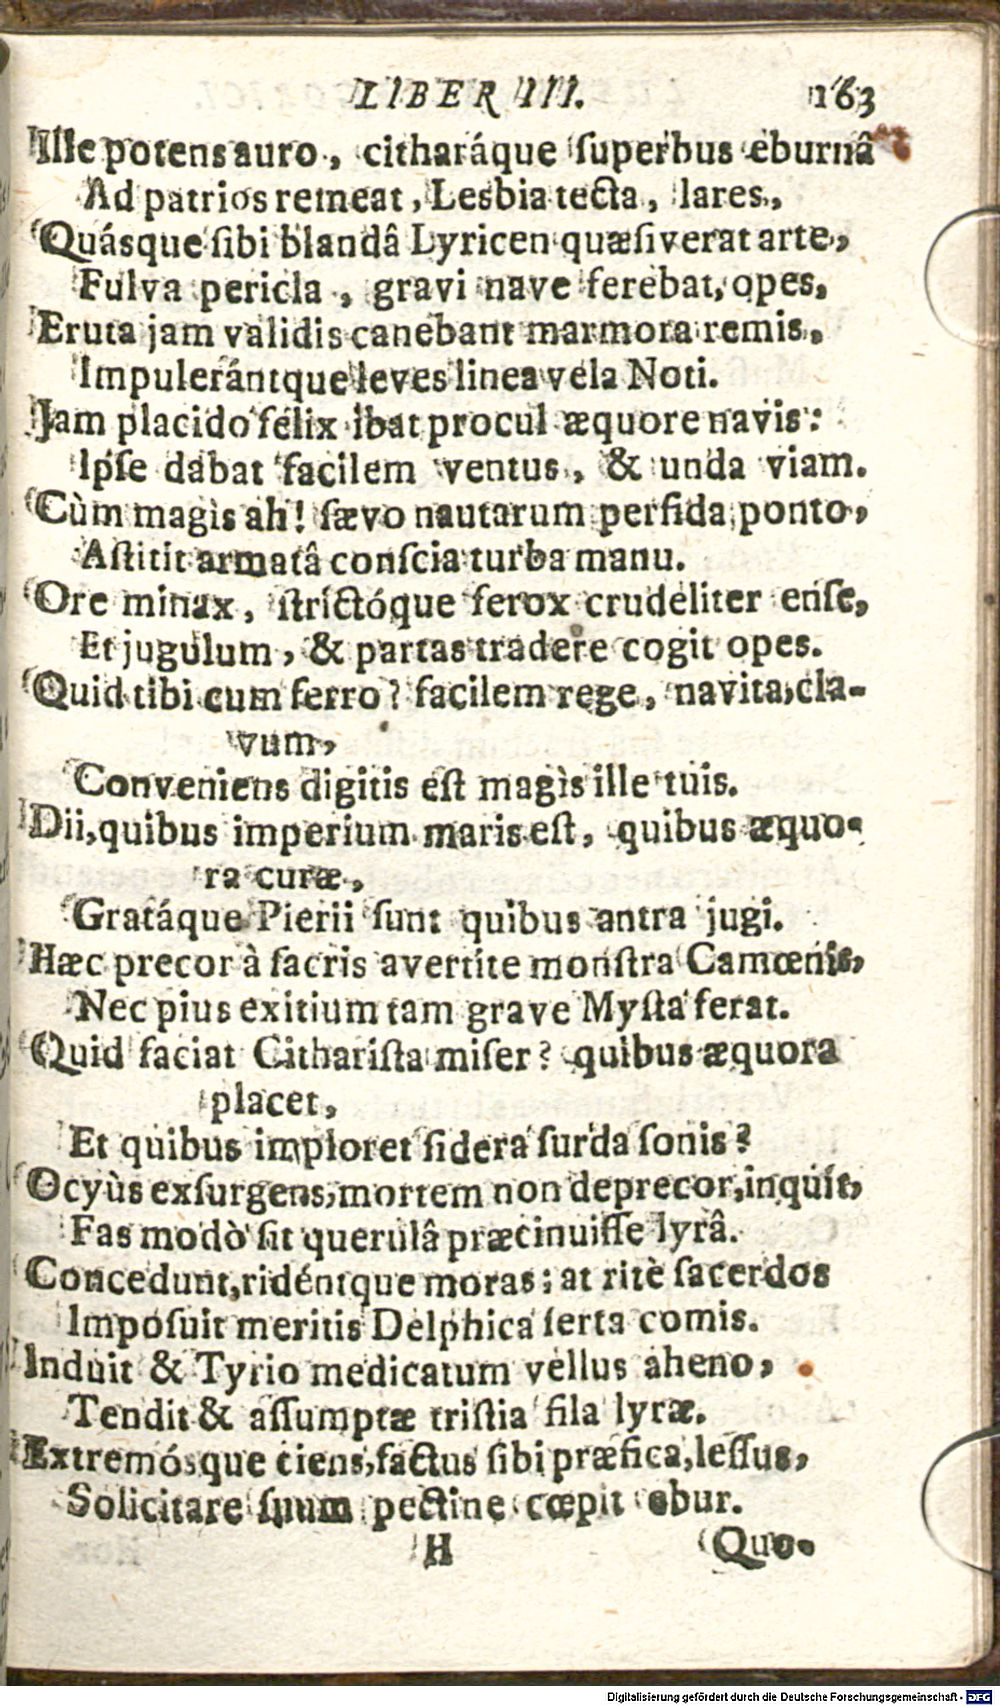 LIBER III. 163
Ille potens auro, citharáque superbus eburnâ
Ad patrios remeat, Lesbia tecta, lares,
Quásque sibi blandâ Lyricen quæsiverat arte,
Fulva pericla, gravi nave ferebat, opes,
Eruta jam validis canebant marmora remis,
Impulerántque leves linea vela Noti.
Jam placido félix ibat procul æquore navis:
Ipse dabat facilem ventus, & unda viam.
Cùm magis ah! sævo nautarum perfida ponto,
Astitit armatâ conscia turba manu.
Ore minax, strictóque ferox crudeliter ense,
Et jugulum, & partas tradere cogit opes.
Quid tibi cum ferro? facilem rege, navita, cla-
vum,
Conveniens digitis est magìs ille tuis.
Dii, quibus imperium maris est, quibus æquo-
ra curæ,
Gratáque Pierii sunt quibus antra jugi.
Hæc precor à sacris avertite monstra Camœnis,
Nec pius exitium tam grave Mysta ferat.
Quid faciat Citharista miser? quibus æquora
placet,
Et quibus imploret sidera surda sonis?
Ocyùs exsurgens, mortem non deprecor, inquit,
Fas modò sit querulâ præcinuisse lyrâ.
Concedunt, ridéntque moras; at ritè sacerdos
Imposuit meritis Delphica serta comis.
Induit & Tyrio medicatum vellus aheno,
Tendit & assumptæ tristia fila lyræ.
Extremósque ciens, factus sibi præfica, lessus,
Solicitare suum pectine cœpit ebur.
H Quo-
Digitalisierung gefördert durch die Deutsche Forschungsgemeinschaft - DFG